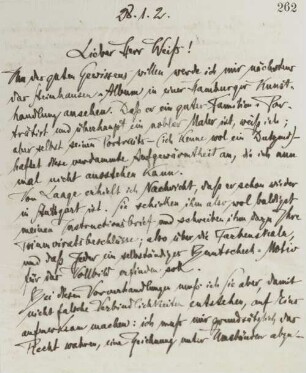 262
28.1.2.
Lieber Herr Weiß!
Um des guten Gewissens willen werde ich mir nächstens
das Steinhausen-Album in einer Hamburger Kunst-
handlung ansehen. Daß er ein guter Familien-Por-
trätist und überhaupt ein nobler Maler ist, weiß ich;
aber selbst seinen Portraits – (ich kenne wol ein Dutzend)
haftet diese verdammte Aufgewärmtheit an, die ich nun
mal nicht ausstehen kann.
Von Laage erhielt ich Nachricht, daß er schon wieder
in Stuttgart ist. Sie schicken ihm also wol baldigst
meinen Instructionsbrief und schreiben ihm dazu Ihre
Triumviratsbeschlüsse, also über die Farbenskala
und daß Jeder ein selbständiges Buntscheck-Motiv
für das Vollbild erfinden soll.
Bei diesen Vorverhandlungen muß ich Sie aber, damit
nicht falsche Verbindlichkeiten entstehen, auf Eins
aufmerksam machen: ich muß mir grundsätzlich das
Recht wahren, eine Zeichnung unter Umständen abzu-